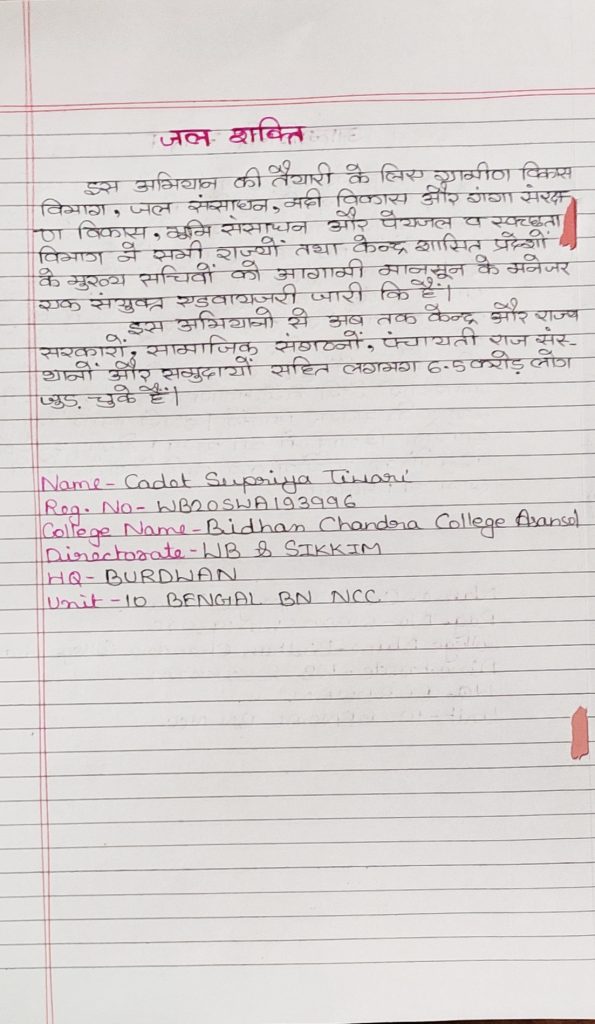 जल शक्ति
इस अभियान की तैयारी के लिए ग्रामीण विकास
विभाग, जल संसाधन, नदी विकास और गंगा संरक्ष
ण विकास, भूमि संसाधन और पेयजल व स्वच्छता
विभाग ने सभी राज्यों तथा केन्द्र शासित प्रदेशों
के मुख्य सचिवों को आगामी मानसून के मनेजर
एक संयुक्त एडवायजरी जारी कि हैं।
इस अभियानो से अब तक केन्द्र और राज्य
सरकारों, सामाजिक संगठनों, पंचायती राज संस-
थानों और समुदायों सहित लगभग 6.5 करोड़ लोग
जुड़ चुके हैं।
Name- Cadet Supriya Tiwari
Reg. No- WB20SWA193996
College Name- Bidhan Chandra College Asansol
Directorate- WB & SIKKIM
HQ- BURDWAN
Unit -10 BENGAL BN NCC